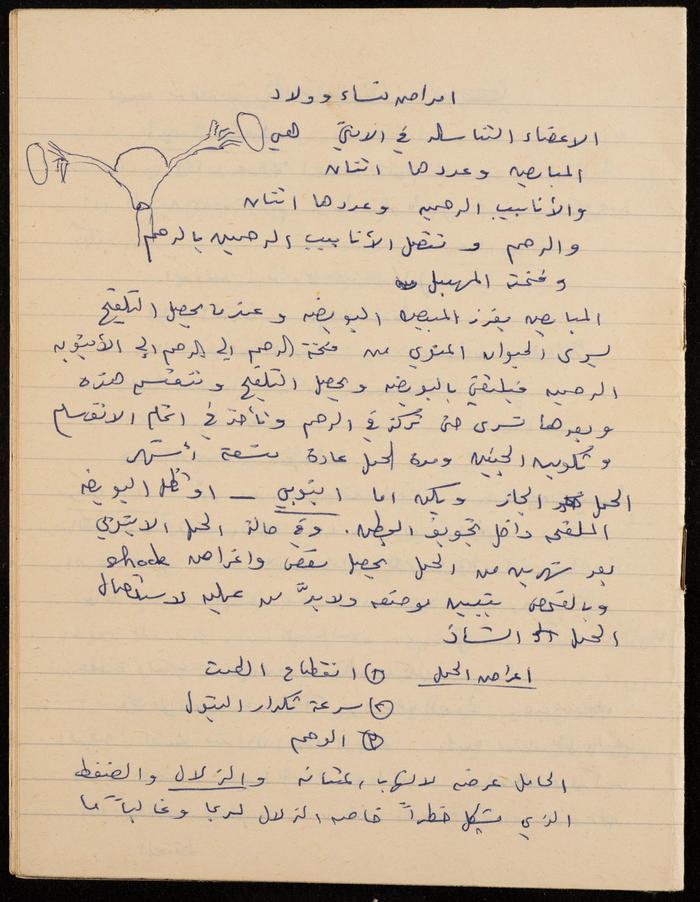 امراض نساء وولاد
الاعضاء التناسله في الانثى هي
المبايض وعددها اثنان
والأنابيب الرحميه وعددها اثنان
والرحم و تتصل الأنابيب الرحميه بالرحم
وفتحة المهبل
المبايض يفرز المبيض البويضه وعندما يحصل التلقيح
يسري الحيوان المنوي من فتحة الرحم الى الرحم الى الأنبوبه
الرحميه فيلتقي بالبويضه ويحصل التلقيح وتنقسم هذه
وبعدها تسري حتى تركز في الرحم وتأخذ في اتمام الانقسام
وتكوين الجنين ومدة الحمل عادة تسعة أشهر
الحمل الجاز ويكون اما انبوبي — او تظل البويضه
الملقحه داخل تجويف البطن. وفي حالة الحمل الانبوبي
بعد شهرين من الحمل يحصل مغص واعراض shock
وبالفحص يتبين موضعه ولابدّ من عمليه لاستئصال
الحمل الشاذ
اعراض الحمل ١ انقطاع الطمث
٢ سرعة تكرار التبول
٣ الوحم
الحامل عرضه لالتهاب المثانه والزلال والضغط
الذي يشكل خطراً خاصه الزلال لربما وغالباً ما